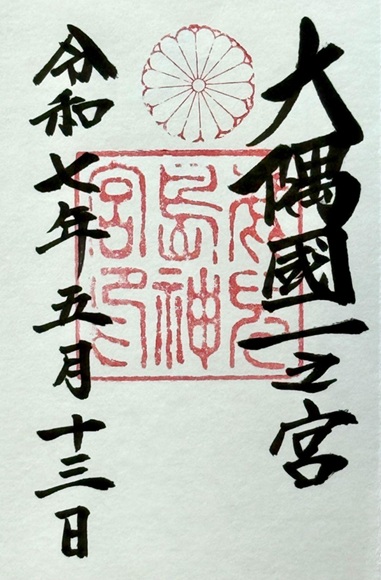 大隅國一之宮
鹿兒
島神
宮印
令和七年五月十三日